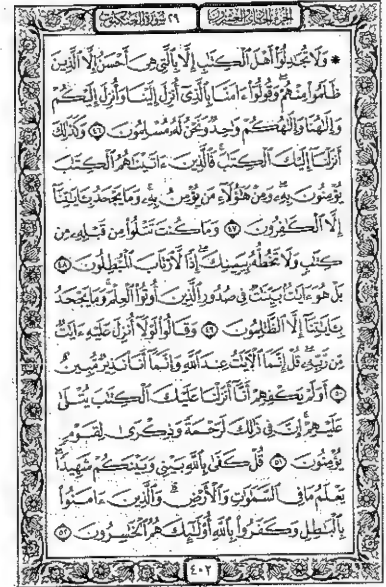 الجزء الحادي والعشرون ٢٩ سورة العنكبوت
* وَلَا تُجَٰدِلُوٓا۟ أَهْلَ ٱلْكِتَٰبِ إِلَّا بِٱلَّتِى هِىَ أَحْسَنُ إِلَّا ٱلَّذِينَ
ظَلَمُوا۟ مِنْهُمْ ۖ وَقُولُوٓا۟ ءَامَنَّا بِٱلَّذِىٓ أُنزِلَ إِلَيْنَا وَأُنزِلَ إِلَيْكُمْ
وَإِلَٰهُنَا وَإِلَٰهُكُمْ وَٰحِدٌ وَنَحْنُ لَهُۥ مُسْلِمُونَ ٤٦ وَكَذَٰلِكَ
أَنزَلْنَآ إِلَيْكَ ٱلْكِتَٰبَ ۚ فَٱلَّذِينَ ءَاتَيْنَٰهُمُ ٱلْكِتَٰبَ
يُؤْمِنُونَ بِهِۦ ۖ وَمِنْ هَٰٓؤُلَآءِ مَن يُؤْمِنُ بِهِۦ ۚ وَمَا يَجْحَدُ بِـَٔايَٰتِنَآ
إِلَّا ٱلْكَٰفِرُونَ ٤٧ وَمَا كُنتَ تَتْلُوا۟ مِن قَبْلِهِۦ مِن
كِتَٰبٍ وَلَا تَخُطُّهُۥ بِيَمِينِكَ ۖ إِذًا لَّٱرْتَابَ ٱلْمُبْطِلُونَ ٤٨
بَلْ هُوَ ءَايَٰتٌۢ بَيِّنَٰتٌ فِى صُدُورِ ٱلَّذِينَ أُوتُوا۟ ٱلْعِلْمَ ۚ وَمَا يَجْحَدُ
بِـَٔايَٰتِنَآ إِلَّا ٱلظَّٰلِمُونَ ٤٩ وَقَالُوا۟ لَوْلَآ أُنزِلَ عَلَيْهِ ءَايَٰتٌ
مِّن رَّبِّهِۦ ۖ قُلْ إِنَّمَا ٱلْءَايَٰتُ عِندَ ٱللَّهِ وَإِنَّمَآ أَنَا۠ نَذِيرٌ مُّبِينٌ
٥٠ أَوَلَمْ يَكْفِهِمْ أَنَّآ أَنزَلْنَا عَلَيْكَ ٱلْكِتَٰبَ يُتْلَىٰ
عَلَيْهِمْ ۚ إِنَّ فِى ذَٰلِكَ لَرَحْمَةً وَذِكْرَىٰ لِقَوْمٍ
يُؤْمِنُونَ ٥١ قُلْ كَفَىٰ بِٱللَّهِ بَيْنِى وَبَيْنَكُمْ شَهِيدًا ۖ
يَعْلَمُ مَا فِى ٱلسَّمَٰوَٰتِ وَٱلْأَرْضِ ۗ وَٱلَّذِينَ ءَامَنُوا۟
بِٱلْبَٰطِلِ وَكَفَرُوا۟ بِٱللَّهِ أُو۟لَٰٓئِكَ هُمُ ٱلْخَٰسِرُونَ ٥٢
٤٠٢